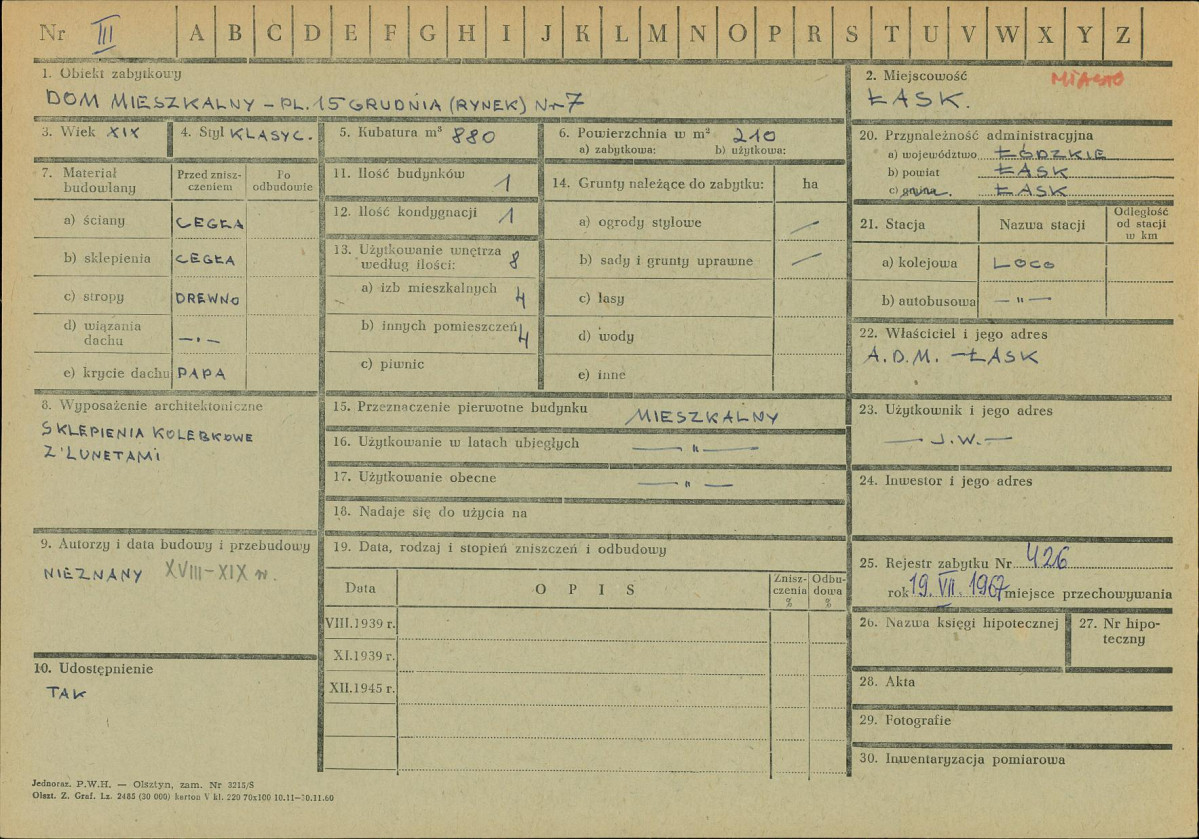 Nr III A B C D E F G H I J K L M N O P R S T U V W X Y Z
1. Obiekt zabytkowy
DOM MIESZKALNY – PL. 15 GRUDNIA (RYNEK) Nr 7
2. Miejscowość MIASTO
ŁASK.
3. Wiek XIX
4. Styl KLASYC.
5. Kubatura m³ 880
6. Powierzchnia w m² 210
a) zabytkowa: b) użytkowa:
20. Przynależność administracyjna
a) województwo ŁÓDZKIE
b) powiat ŁASK
c) gmina ŁASK
7. Materiał budowlany
Przed zniszczeniem
Po odbudowie
a) ściany CEGŁA
b) sklepienia CEGŁA
c) stropy DREWNO
d) wiązania dachu —„—
e) krycie dachu PAPA
11. Ilość budynków 1
12. Ilość kondygnacji 1
13. Użytkowanie wnętrza według ilości: 8
a) izb mieszkalnych 4
b) innych pomieszczeń 4
c) piwnic
14. Grunty należące do zabytku: ha
a) ogrody stylowe —
b) sady i grunty uprawne —
c) lasy
d) wody
e) inne
21. Stacja
Nazwa stacji
Odległość od stacji w km
a) kolejowa LOCO
b) autobusowa —„—
22. Właściciel i jego adres
A.D.M. – ŁASK
8. Wyposażenie architektoniczne
SKLEPIENIA KOLEBKOWE
Z LUNETAMI
15. Przeznaczenie pierwotne budynku MIESZKALNY
16. Użytkowanie w latach ubiegłych —„—
17. Użytkowanie obecne —„—
18. Nadaje się do użycia na
23. Użytkownik i jego adres
— J.W. —
24. Inwestor i jego adres
9. Autorzy i data budowy i przebudowy
NIEZNANY XVIII–XIX w.
10. Udostępnienie
TAK
19. Data, rodzaj i stopień zniszczeń i odbudowy
Data
O P I S
Zniszczenia %
Odbudowa %
VIII.1939 r.
XI.1939 r.
XII.1945 r.
25. Rejestr zabytku Nr 426
rok 19. VII. 1967 miejsce przechowywania
26. Nazwa księgi hipotecznej
27. Nr hipoteczny
28. Akta
29. Fotografie
30. Inwentaryzacja pomiarowa
Jednoraz. P.W.H. — Olsztyn, zam. Nr 3215/S
Olszt. Z. Graf. Lz. 2485 (30 000) karton V kl. 220 70x100 10.11—10.11.60